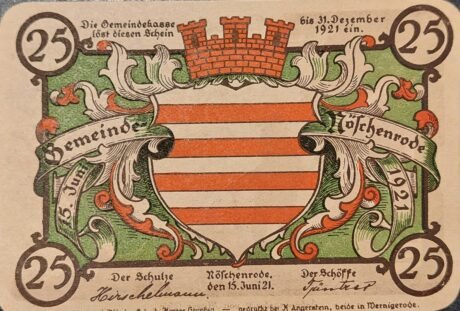 25 Die Gemeindekasse bis 31. Dezember 25
löst diesen Schein 1921 ein.
Gemeinde Nöschenrode
15. Juni 1921
25 Der Schulze Nöschenrode, Der Schöffe 25
Hirschelmann den 15. Juni 21.
gedruckt bei R. Angerstein, beide in Wernigerode.